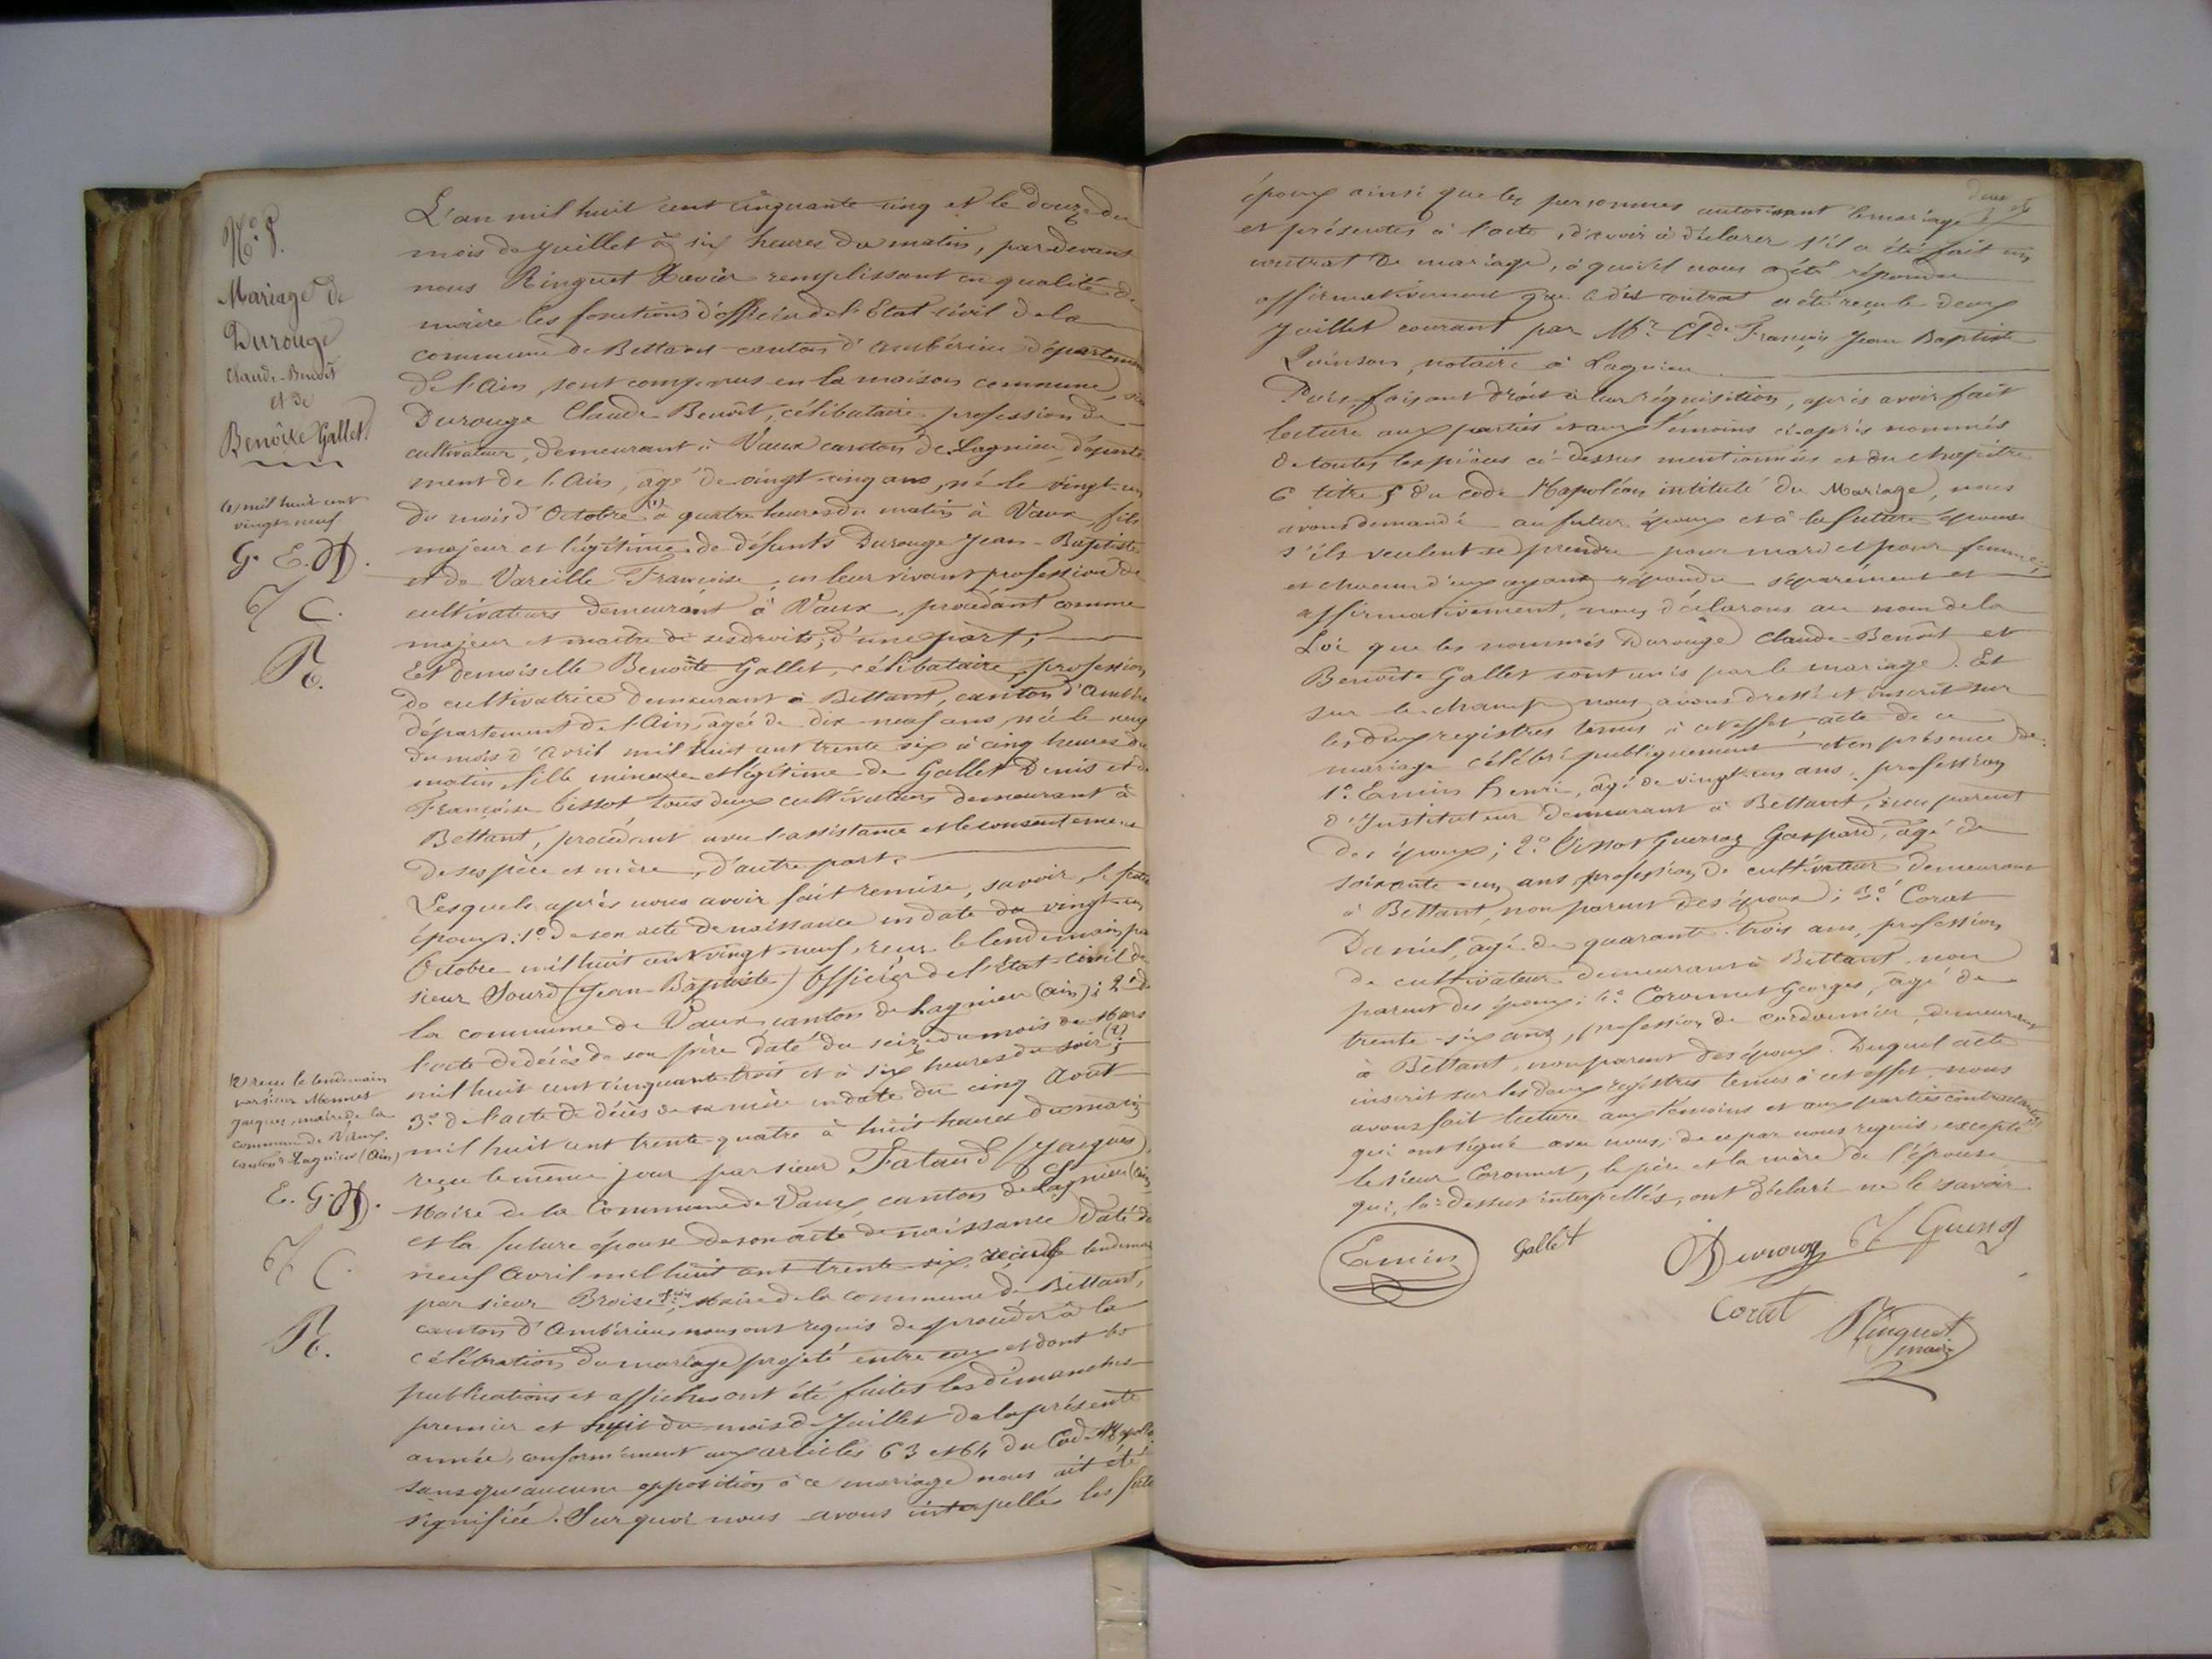 N.º 8.
Mariage de
Durouge
Claude-Benoît
et de
Benoîte Gallet
(1) mil huit cent
vingt-neuf
G. E. D.
C.
R.
(2) reçu le lendemain
par sieur Monnet
Jacques, maire de la
commune de Vaux,
canton de Lagnieu (Ain)
E. G. D.
C.
R.
L'an mil huit cent cinquante cinq et le douze du
mois de Juillet à six heures du matin, par devant
nous Ringuet Xavier remplissant en qualité de
maire les fonctions d'officier de l'Etat-civil de la
commune de Bettant canton d'Ambérieu département
de l'Ain, sont comparus en la maison commune,
Durouge Claude-Benoît, célibataire, profession de
cultivateur, demeurant à Vaux canton de Lagnieu, départe
ment de l'Ain, âgé de vingt-cinq ans, né le vingt-un
du mois d'Octobre (1) à quatre heures du matin à Vaux, fils
majeur et légitime de défunts Durouge Jean-Baptiste
et de Vareille Françoise, en leur vivant profession de
cultivateurs demeurant à Vaux, procédant comme
majeur et maître de ses droits, d'une part;
Et demoiselle Benoîte Gallet, célibataire, profession
de cultivatrice demeurant à Bettant, canton d'Ambérieu
département de l'Ain, âgée de dix-neuf ans, née le neuf
du mois d'Avril mil huit cent trente six à cinq heures du
matin, fille mineure et légitime de Gallet Denis et de
Françoise Tissot, tous deux cultivateurs demeurant à
Bettant, procédant avec l'assistance et le consentement
de ses père et mère, d'autre part.
Lesquels après nous avoir fait remise, savoir, le futur
époux: 1º de son acte de naissance en date du vingt-un
Octobre mil huit cent vingt-neuf, reçu le lendemain par
sieur Sourd (Jean-Baptiste) Officier de l'Etat-civil de
la commune de Vaux, canton de Lagnieu (Ain); 2º de
l'acte de décès de son père daté du seize du mois de Mars
mil huit cent cinquante-trois et à six heures du soir (2);
3º de l'acte de décès de sa mère en date du cinq Août
mil huit cent trente-quatre à huit heures du matin
reçu le même jour par sieur Fataud (Jacques)
Maire de la Commune de Vaux, canton de Lagnieu (Ain)
et la future épouse de son acte de naissance daté du
neuf Avril mil huit cent trente-six, reçu le lendemain
par sieur Broise, Maire de la commune de Bettant,
canton d'Ambérieu nous ont requis de procéder à la
célébration du mariage projeté entre eux et dont les
publications et affiches ont été faites les dimanches
premier et huit du mois de Juillet de la présente
année, conformément aux articles 63 et 64 du Code Napoléon
sans qu'aucune opposition à ce mariage nous ait été
signifiée. Sur quoi nous avons interpellés les futurs
époux ainsi que les personnes autorisant le mariage
et présentes à l'acte, d'avoir à déclarer s'il a été fait un
contrat de mariage, à quoi il nous a été répondu
affirmativement que le dit contrat a été reçu le deux
Juillet courant par Mr Cl.de François Jean Baptiste
Quinson, notaire à Lagnieu
Puis, faisant droit à leur réquisition, après avoir fait
lecture aux parties et aux témoins ci-après nommés
de toutes les pièces ci-dessus mentionnées et du chapitre
6 titre 5 du code Napoléon intitulé du Mariage, nous
avons demandé au futur époux et à la future épouse
s'ils veulent se prendre pour mari et pour femme;
et chacun d'eux ayant répondu séparément et
affirmativement, nous déclarons au nom de la
Loi que les nommés Durouge Claude-Benoît et
Benoîte Gallet sont unis par le mariage. Et
sur le champ nous avons dressé et inscrit sur
les deux registres tenus à cet effet, acte de ce
mariage célébré publiquement et en présence de:
1º Emin Henri, âgé de vingt-un ans, profession
d'Instituteur demeurant à Bettant, non parent
des époux; 2º Tissot Guerraz Gaspard, âgé de
soixante-un ans, profession de cultivateur demeurant
à Bettant, non parent des époux; 3º Corat
Daniel, âgé de quarante-trois ans, profession
de cultivateur demeurant à Bettant, non
parent des époux; 4º Coronnet Georges, âgé de
trente-six ans, profession de cordonnier, demeurant
à Bettant, non parent des époux. Duquel acte
inscrit sur les deux registres tenus à cet effet, nous
avons fait lecture aux témoins et aux parties contractantes
qui ont signé avec nous, de ce par nous requis, excepté
le sieur Coronnet, le père et la mère de l'épouse
qui, là-dessus interpellés, ont déclaré ne le savoir
Emin Gallet Durouge Guerraz
Corat
Ringuet
maire